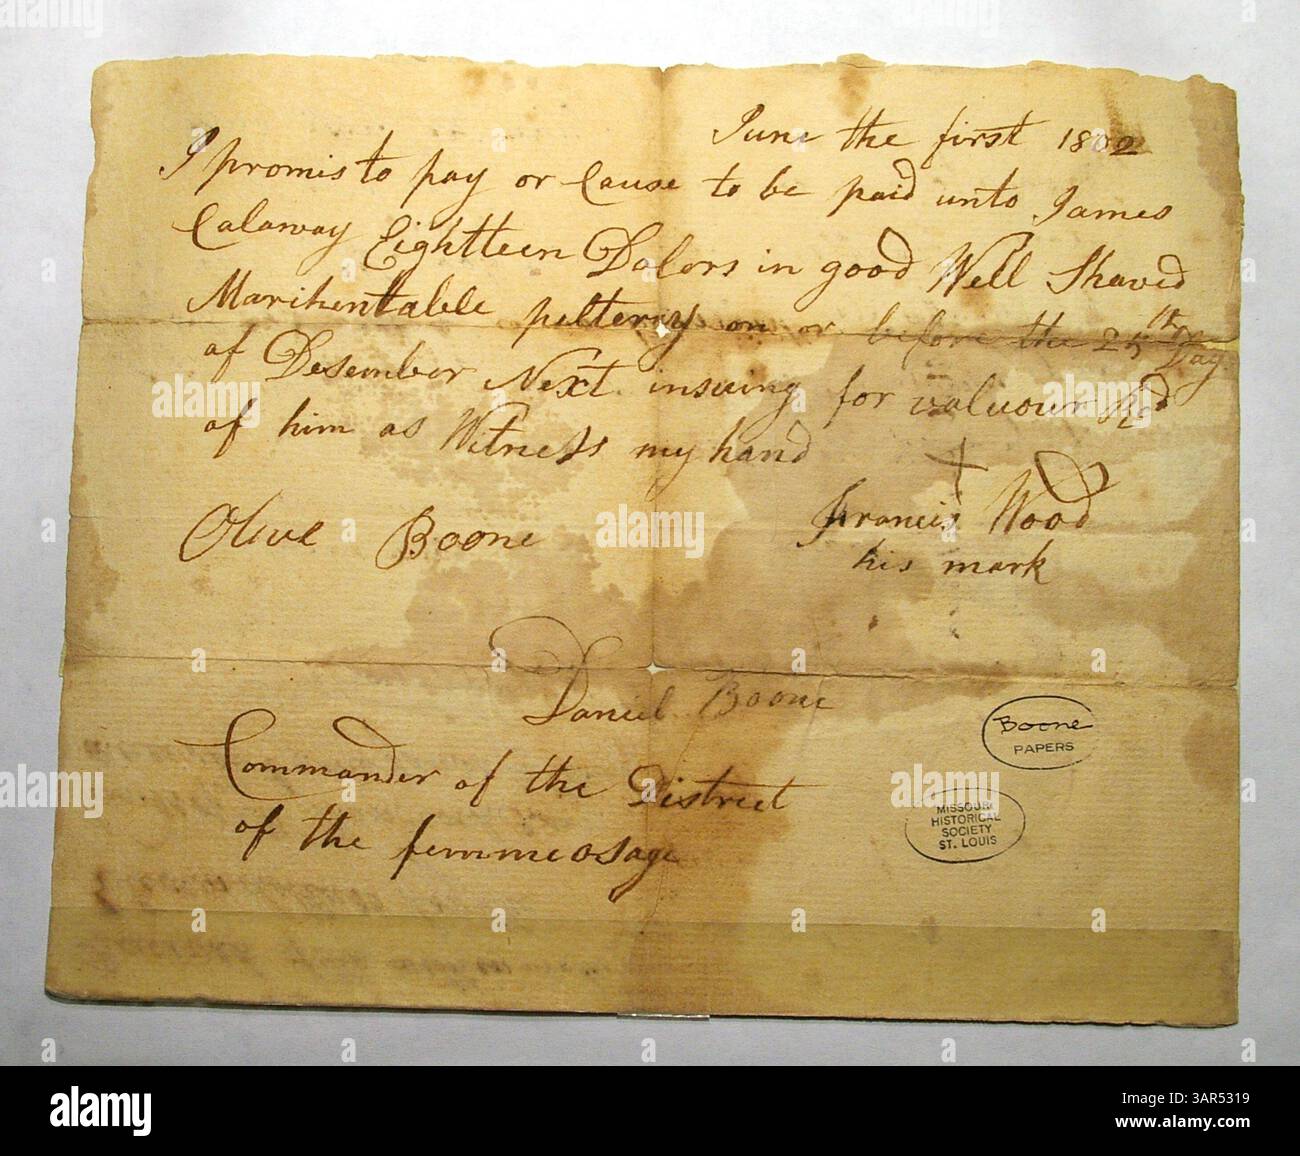 June the first 1802
I promis to pay or Cause to be paid unto James
Calaway Eightteen Dolors in good Well Shaved
Marihentable pelterey on or before the 25th Day
of Desember Next insuing for valuour Rcd
of him as Witness my hand
Olive Boone
Francis Wood
his mark
Daniel Boone
Commander of the District
of the femmeosage
Boone
PAPERS
MISSOURI
HISTORICAL
SOCIETY
ST. LOUIS
alamy
Image ID: 3AR5319
www.alamy.com